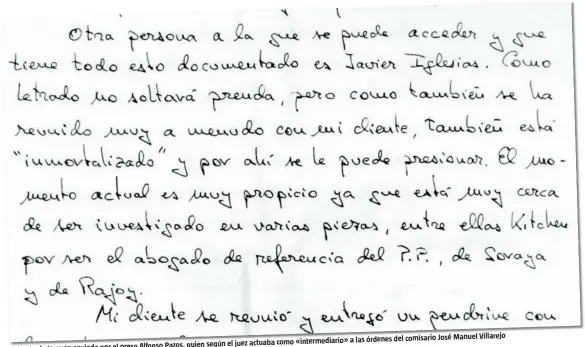 Otra persona a la que se puede acceder y que
tiene todo esto documentado es Javier Iglesias. Como
letrado no soltará prenda, pero como también se ha
reunido muy a menudo con mi cliente, también está
"inmortalizado" y por ahí se le puede presionar. El mo-
mento actual es muy propicio ya que está muy cerca
de ser investigado en varias piezas, entre ellas Kitchen
por ser el abogado de referencia del P.P., de Soraya
y de Rajoy.
Mi cliente se reunió y entregó un pendrive con
enviado por el preso Alfonso Pazos, quien según el juez actuaba como «intermediario» a las órdenes del comisario José Manuel Villarejo